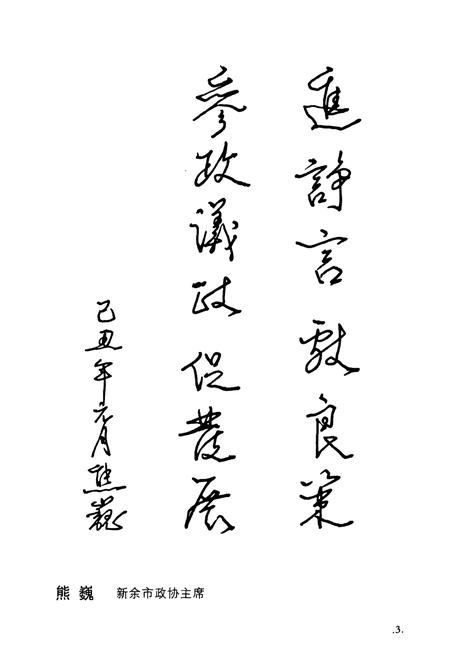 進諍言獻良策
參政議政促發展
己丑年元月熊巍
熊 巍 新余市政协主席
.3.